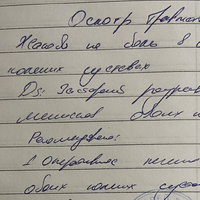 Осмотр травмат
Жалобы на боль в о
коленных суставах
Ds: Застарелый разрыв
менисков обоих к
Рекомендовано:
1 Оперативное лечение
обоих колен. суста